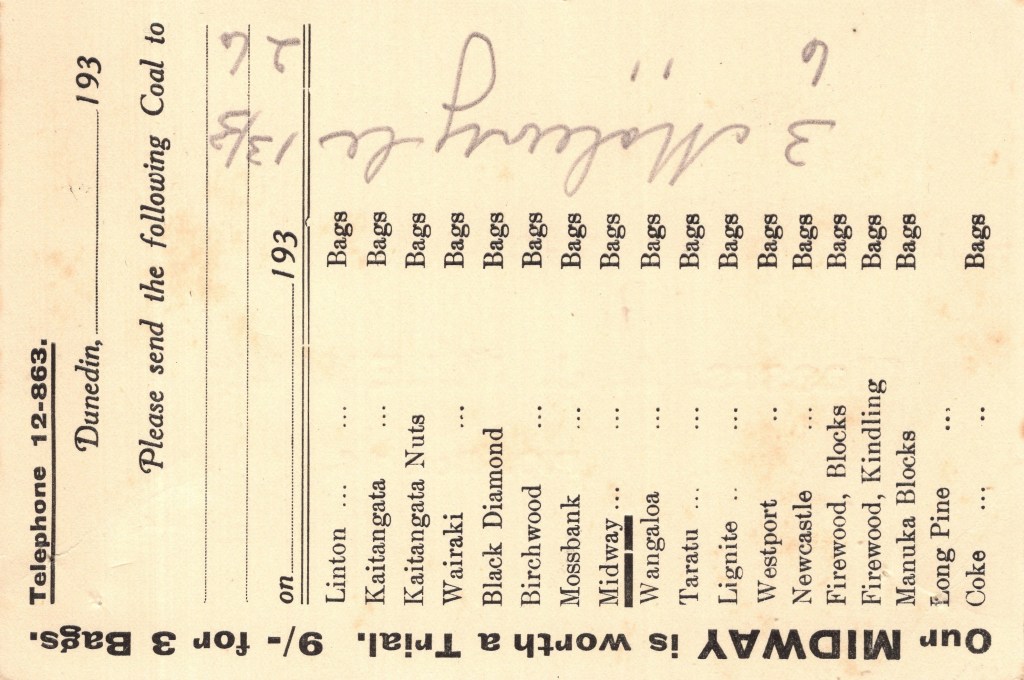 Telephone 12-863.
Dunedin, 193
Please send the following Coal to
on 193
Linton ... Bags
Kaitangata ... Bags
Kaitangata Nuts Bags
Wairaki ... Bags
Black Diamond Bags
Birchwood ... Bags
Mossbank ... Bags
Midway ... ... Bags
Wangaloa ... Bags
Taratu ... ... Bags
Lignite .. ... Bags
Westport .. Bags
Newcastle ... Bags
Firewood, Blocks Bags
Firewood, Kindling Bags
Manuka Blocks Bags
Long Pine ...
Coke ... .. Bags
Our MIDWAY is worth a Trial. 9/- for 3 Bags.
3
6
13/3
2 6